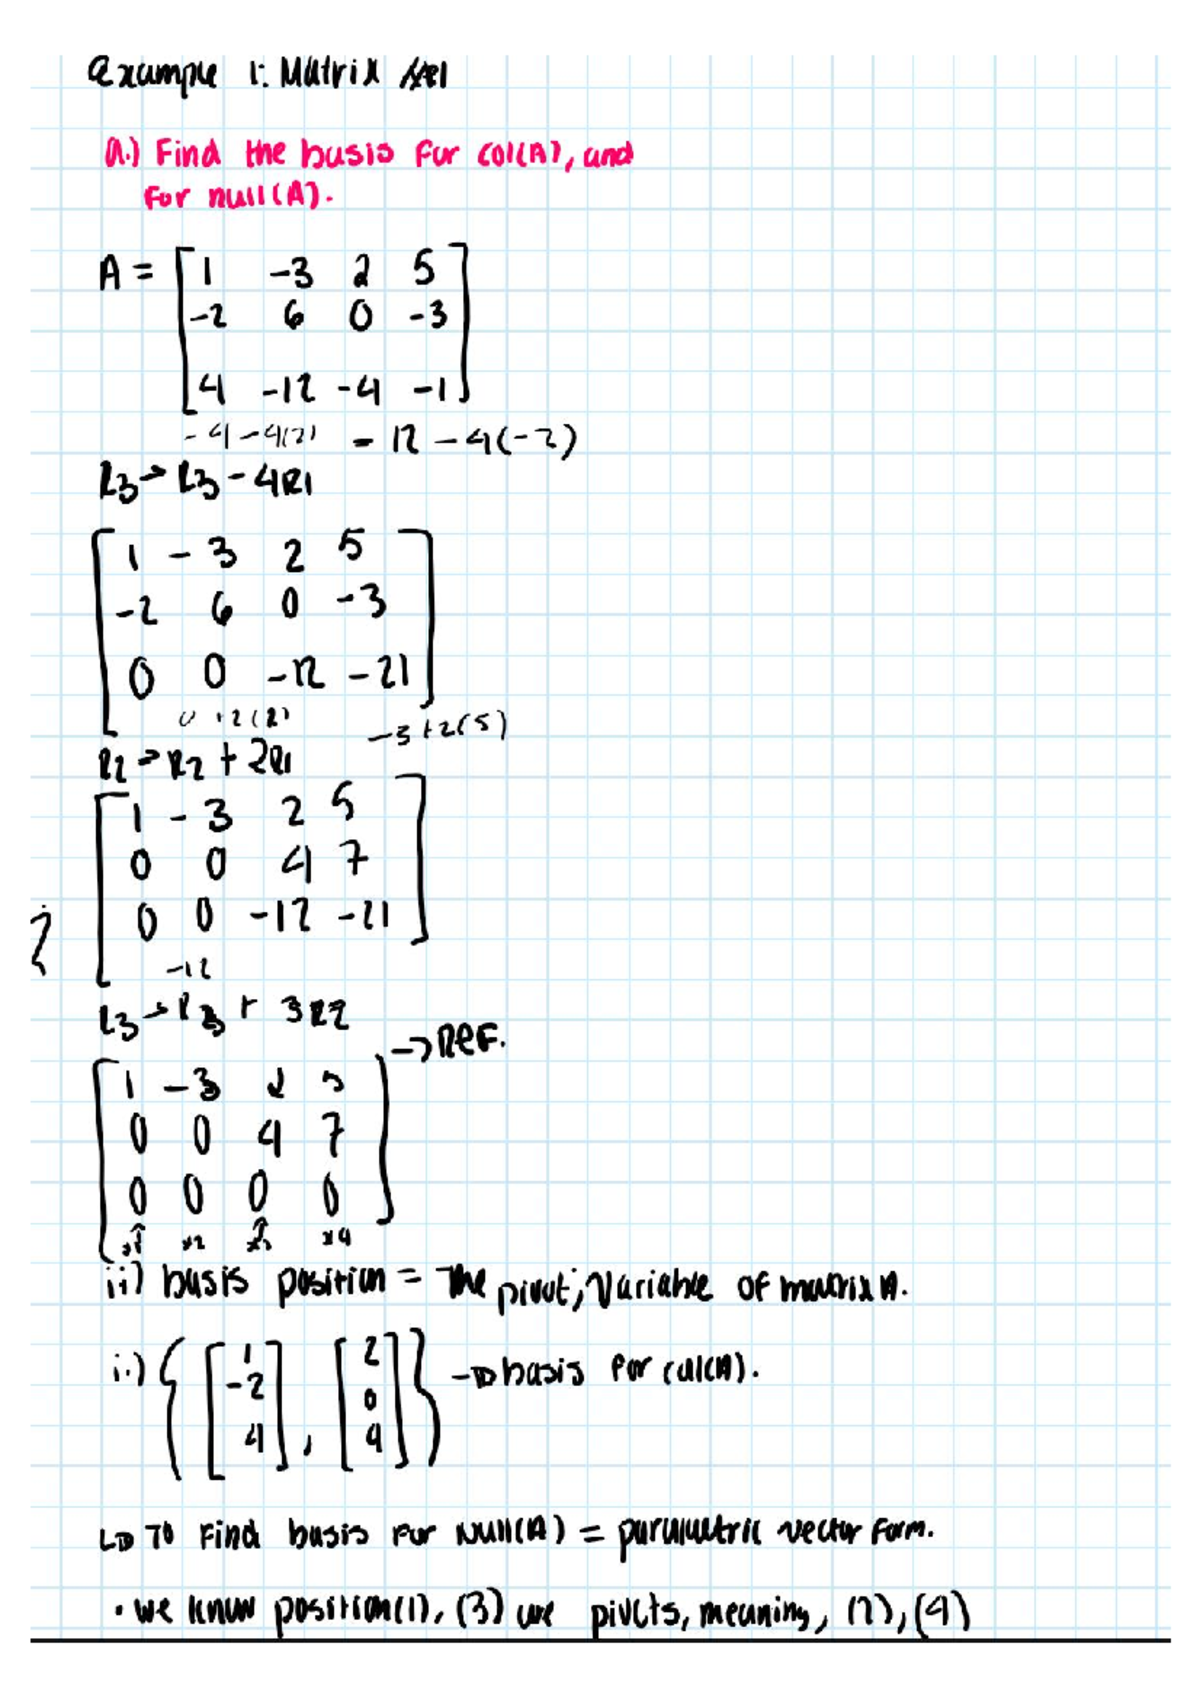 Example 1: Matrix
a.) Find the basis for col(A), and
for null(A).
A = [1 -3 2 5
-2 6 0 -3
4 -12 -4 -1]
-4-4(2) -12-4(-2)
R3→R3-4R1
[1 -3 2 5
-2 6 0 -3
0 0 -12 -21]
0+2(2) -3+2(5)
R2→R2+2R1
[1 -3 2 5
0 0 4 7
0 0 -12 -21]
-12
R3→R3+3R2
→REF.
[1 -3 2 5
0 0 4 7
0 0 0 0]
x1 x2 x3 x4
ii) basis position = The pivot; Variable of matrix A.
i.) {[1 -2 4], [2 0 4]} → basis for col(A).
↳ To Find basis for Null(A) = parametric vector form.
• we know position (1), (3) are pivots, meaning, (2), (4)